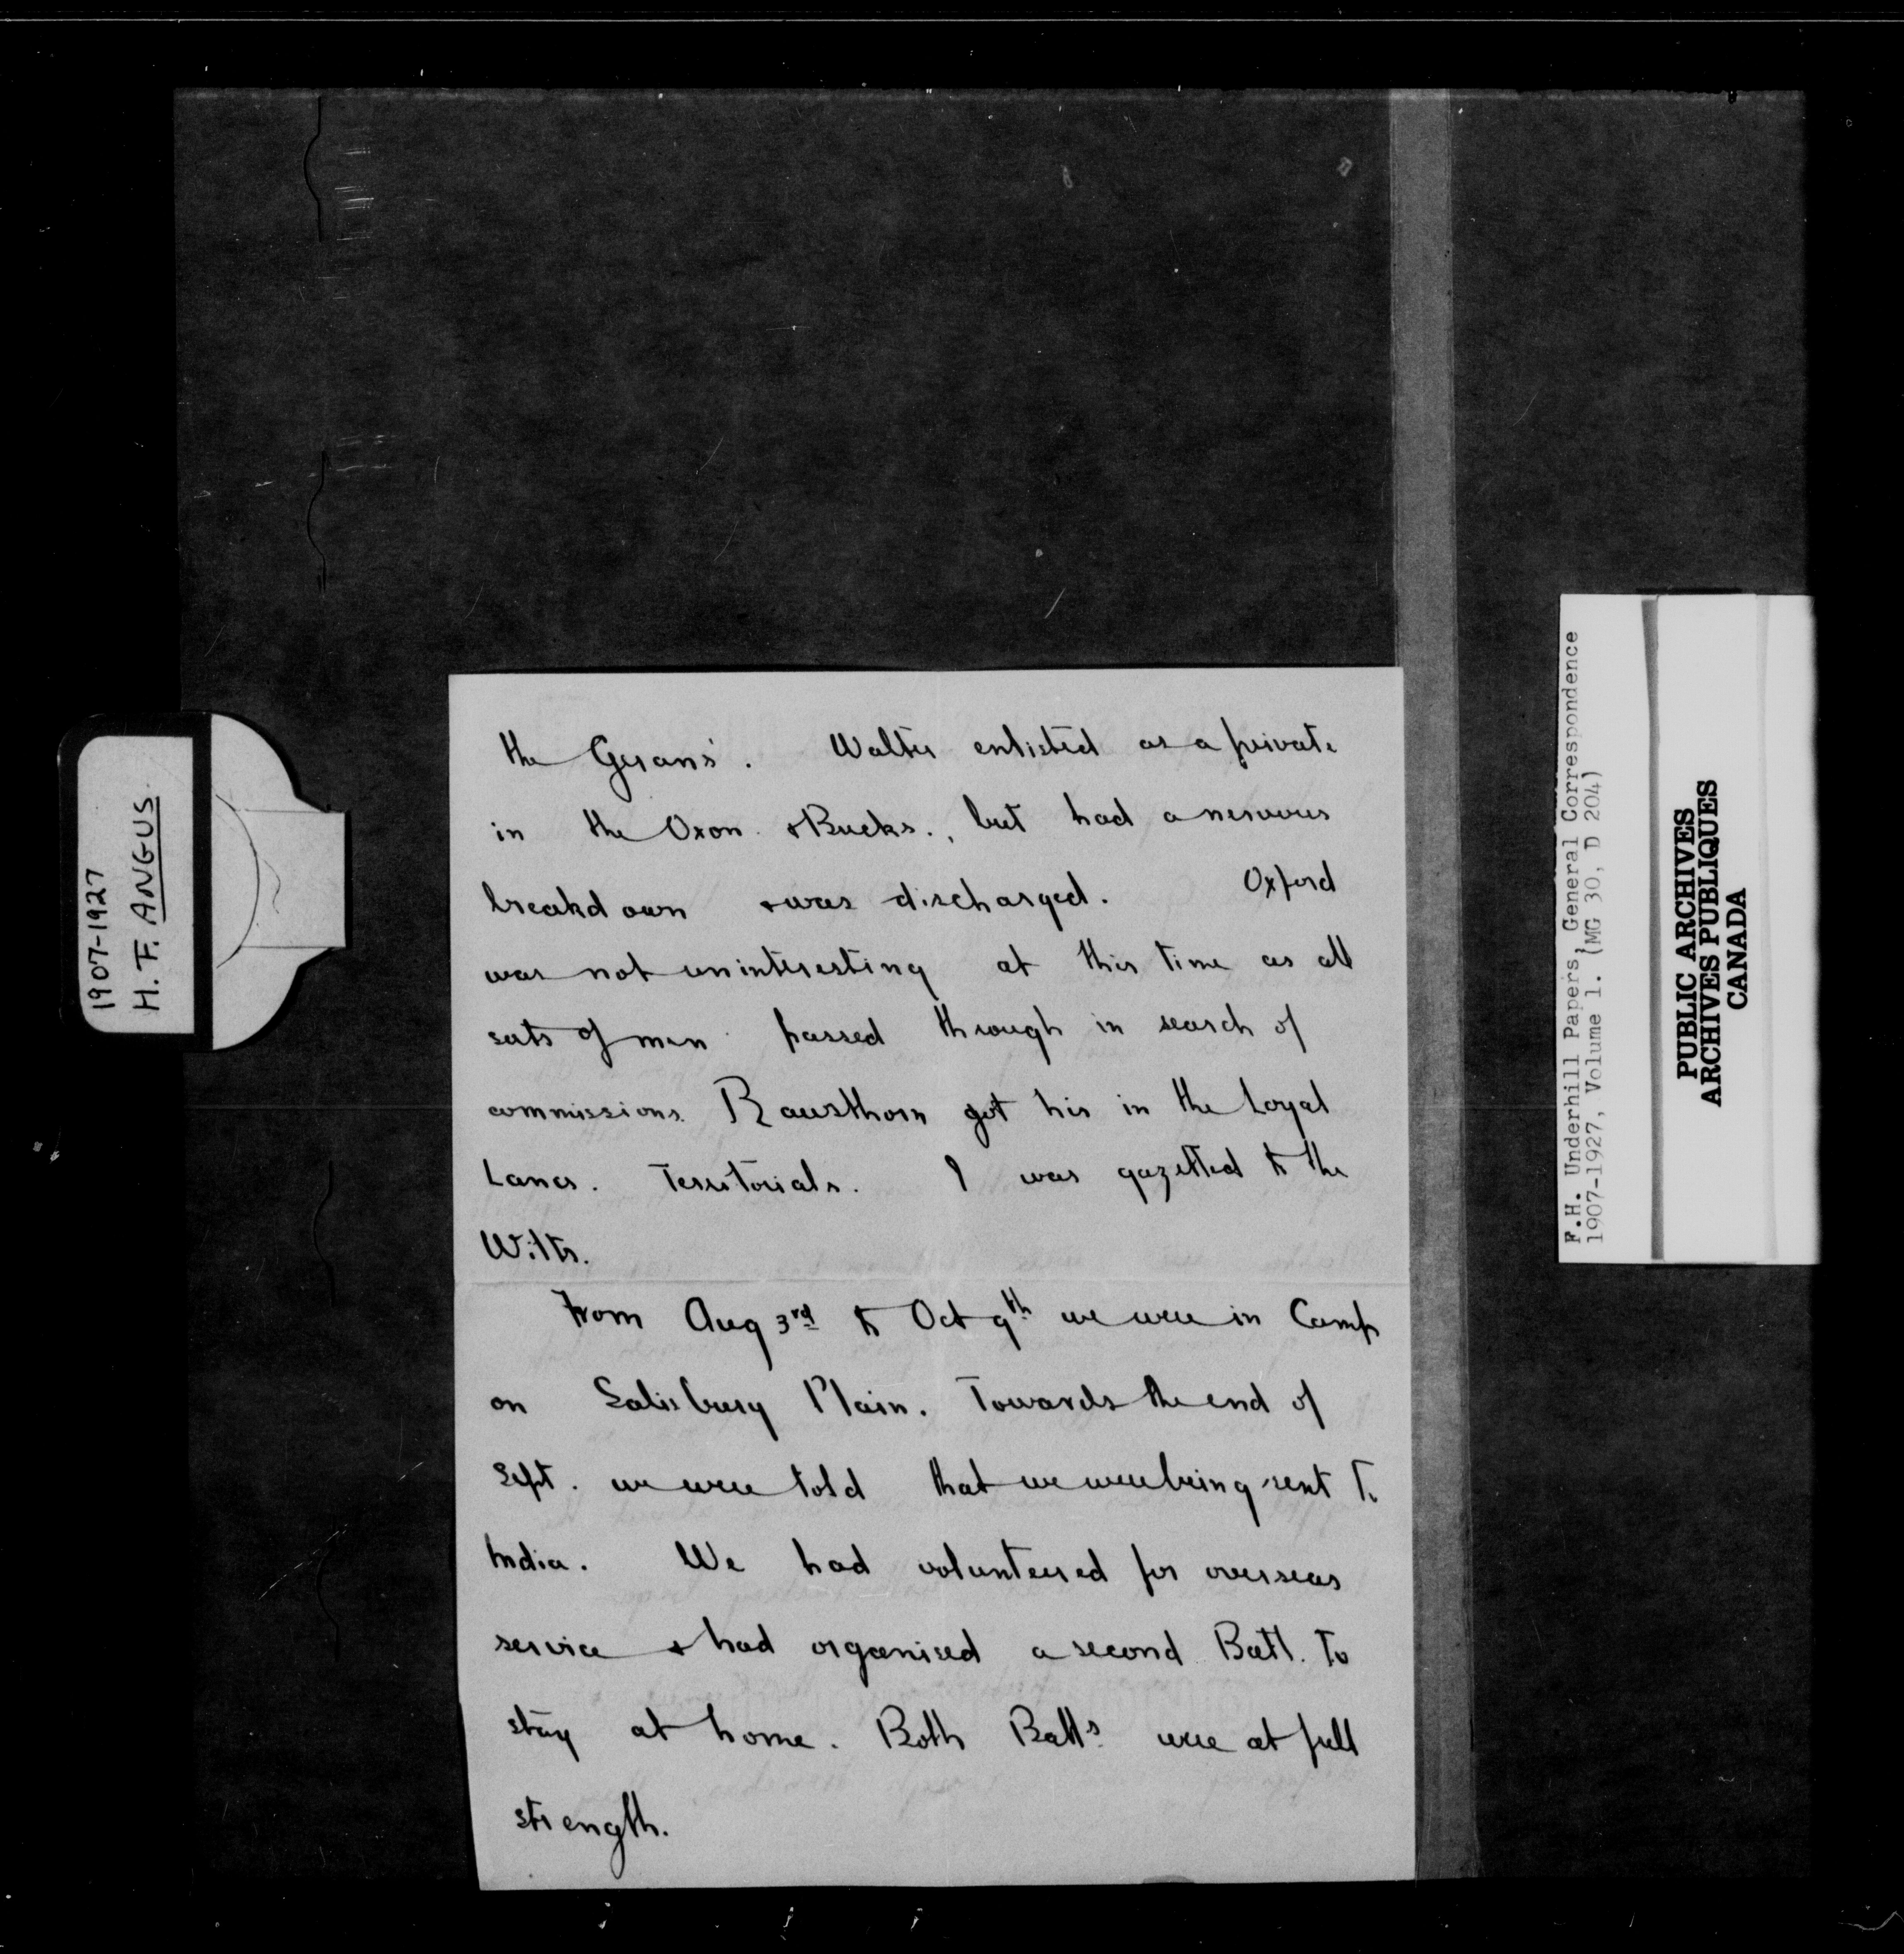 the Gerans'. Walter enlisted as a private
in the Oxon. & Bucks., but had a nervous
breakdown & was discharged. Oxford
was not uninteresting at this time as all
sorts of men passed through in search of
commissions. Rawsthorn got his in the Loyal
Lancs. Territorials. I was gazetted to the
Wilts.
From Aug 3rd to Oct 9th we were in Camp
on Salisbury Plain. Towards the end of
Sept. we were told that we were being sent to
India. We had volunteered for overseas
service & had organised a second Batt. to
stay at home. Both Batts were at full
strength.
1907-1927
H. F. ANGUS.
F.H. Underhill Papers, General Correspondence
1907-1927, Volume 1. (MG 30, D 204)
PUBLIC ARCHIVES
ARCHIVES PUBLIQUES
CANADA